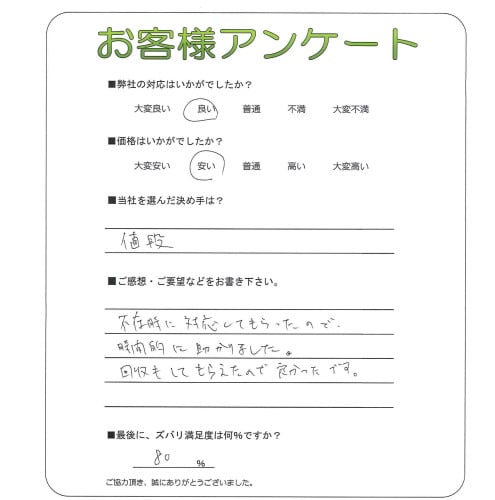 お客様アンケート
■弊社の対応はいかがでしたか？
大変良い 良い 普通 不満 大変不満
■価格はいかがでしたか？
大変安い 安い 普通 高い 大変高い
■当社を選んだ決め手は？
値段
■ご感想・ご要望などをお書き下さい。
不在時に対応してもらったので、
時間的に助かりました。
回収もしてもらえたので良かったです。
■最後に、ズバリ満足度は何％ですか？
80 ％
ご協力頂き、誠にありがとうございました。